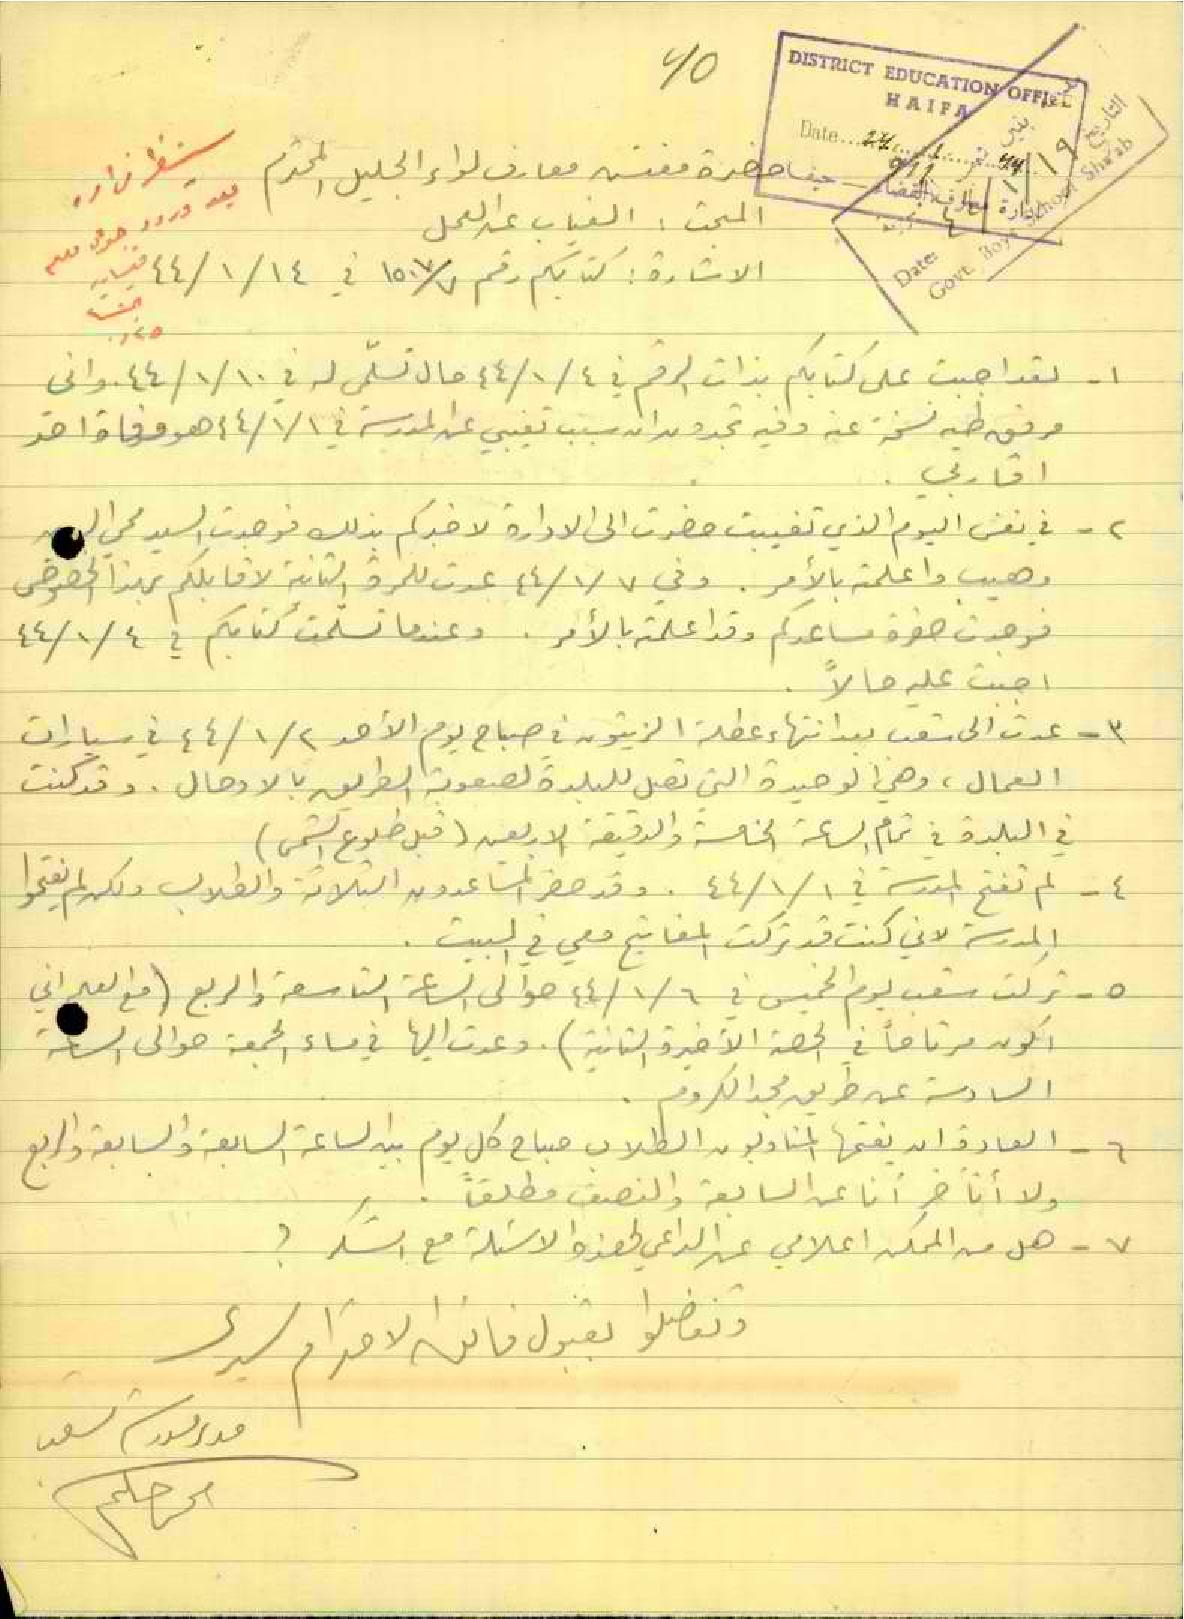 40
DISTRICT EDUCATION OFFICE
HAIFA
Date... 24 1 44
التاريخ ١٩/١
Date:
Govt. Boys School Sha'ab
حضرة مفتش معارف لواء الجليل المحترم
ادارة معارف القضاء - حيفا
المبحث : الغياب عن العمل
الاشارة : كتابكم رقم ١٥٠٧/٧ في ١٤/١/٤٤
ينتظر
بعد ورود
١- لقد اجبت على كتابكم بذات الرقم في ٤/١/٤٤ حال تسلّمي له في ١٠/١/٤٤. واني
مرفق طيه نسخة عنه وفيه تجدون ان سبب تغيبي عن المدرسة في ١/١/٤٤ هو وفاة احد
اقاربي .
٢- في نفس اليوم الذي تغيبت حضرت الى الادارة لاخبركم بذلك فوجدت السيد محي الدين
وهيب واعلمته بالأمر . وفي ٧/١/٤٤ عدت للمرة الثانية لاقابلكم بهذا الخصوص
فوجدت حضرة مساعدكم وقد اعلمته بالأمر . وعندما تسلّمت كتابكم في ٤/١/٤٤
اجبت عليه حالاً .
٣- عدت الى شعب بعد انتهاء عطلة الزيتون في صباح يوم الأحد ٢/١/٤٤ في سيارات
العمال ، وهي الوحيدة التي تصل للبلدة لصعوبة الطريق بالاوحال . وقد كنت
في البلدة في تمام الساعة الخامسة والدقيقة الاربعين (قبل طلوع الشمس)
٤- لم تفتح المدرسة في ١/١/٤٤ . وقد حضر المساعدون الثلاثة والطلاب ولكن لم يفتحوا
المدرسة لاني كنت قد تركت المفاتيح معي في البيت .
٥- تركت شعب يوم الخميس في ٦/١/٤٤ حوالى الساعة التاسعة والربع (مع العلم اني
اكون مرتاحاً في الحصة الأخيرة الثانية) . وعدت اليها في مساء الجمعة حوالى الساعة
السادسة عن طريق مجد الكروم .
٦- العادة ان يفتحها المناوبون الطلاب صباح كل يوم بين الساعة السابعة والسابعة والربع
ولا أتأخر أنا عن السابعة والنصف مطلقاً .
٧- هل من الممكن اعلامي عن الداعي لهذه الاسئلة مع الشكر ؟
وتفضلوا بقبول فائق الاحترام سيدي
مدير مدرسة شعب